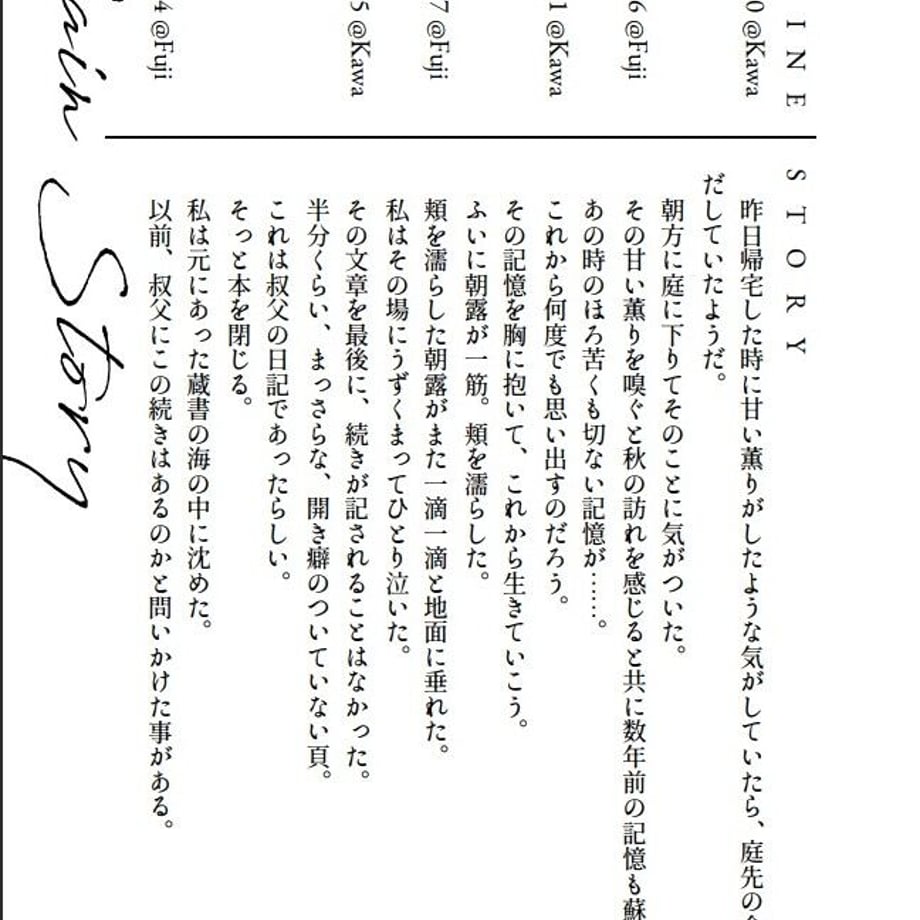 INE STORY
0 @Kawa
昨日帰宅した時に甘い薫りがしたような気がしていたら、庭先の
だしていたようだ。
朝方に庭に下りてそのことに気がついた。
6 @Fuji
その甘い薫りを嗅ぐと秋の訪れを感じると共に数年前の記憶も蘇
あの時のほろ苦くも切ない記憶が……。
1 @Kawa
これから何度でも思い出すのだろう。
その記憶を胸に抱いて、これから生きていこう。
ふいに朝露が一筋。頬を濡らした。
7 @Fuji
頬を濡らした朝露がまた一滴一滴と地面に垂れた。
私はその場にうずくまってひとり泣いた。
5 @Kawa
その文章を最後に、続きが記されることはなかった。
半分くらい、まっさらな、開き癖のついていない頁。
これは叔父の日記であったらしい。
そっと本を閉じる。
私は元にあった蔵書の海の中に沈めた。
4 @Fuji
以前、叔父にこの続きはあるのかと問いかけた事がある。
ain Story